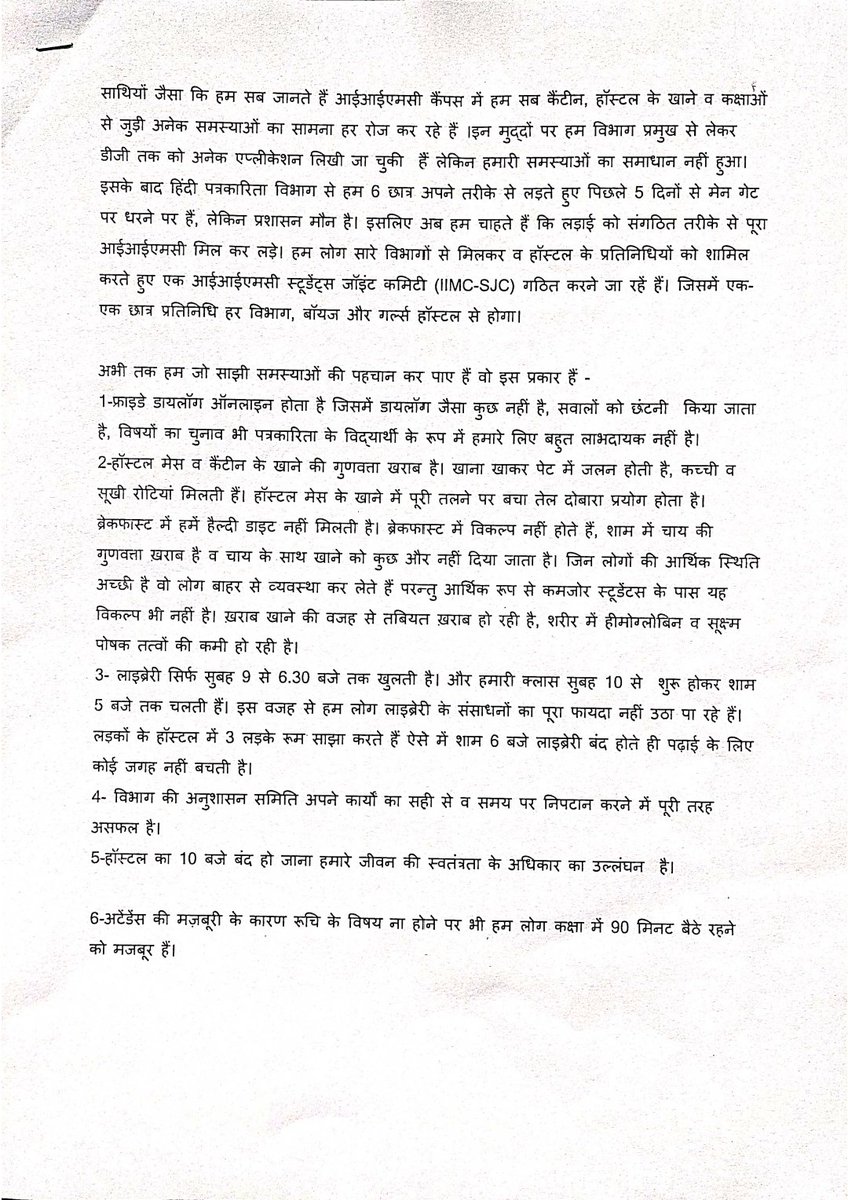 साथियों जैसा कि हम सब जानते हैं आईआईएमसी कैंपस में हम सब कैंटीन, हॉस्टल के खाने व कक्षाओं
से जुड़ी अनेक समस्याओं का सामना हर रोज कर रहे हैं ।इन मुद्दों पर हम विभाग प्रमुख से लेकर
डीजी तक को अनेक एप्लीकेशन लिखी जा चुकी हैं लेकिन हमारी समस्याओं का समाधान नहीं हुआ।
इसके बाद हिंदी पत्रकारिता विभाग से हम 6 छात्र अपने तरीके से लड़ते हुए पिछले 5 दिनों से मेन गेट
पर धरने पर हैं, लेकिन प्रशासन मौन है। इसलिए अब हम चाहते हैं कि लड़ाई को संगठित तरीके से पूरा
आईआईएमसी मिल कर लड़े। हम लोग सारे विभागों से मिलकर व हॉस्टल के प्रतिनिधियों को शामिल
करते हुए एक आईआईएमसी स्टूडेंट्स जॉइंट कमिटी (IIMC-SJC) गठित करने जा रहें हैं। जिसमें एक-
एक छात्र प्रतिनिधि हर विभाग, बॉयज और गर्ल्स हॉस्टल से होगा।
अभी तक हम जो साझी समस्याओं की पहचान कर पाए हैं वो इस प्रकार हैं -
1-फ्राइडे डायलॉग ऑनलाइन होता है जिसमें डायलॉग जैसा कुछ नहीं है, सवालों को छंटनी किया जाता
है, विषयों का चुनाव भी पत्रकारिता के विद्यार्थी के रूप में हमारे लिए बहुत लाभदायक नहीं है।
2-हॉस्टल मेस व कैंटीन के खाने की गुणवत्ता खराब है। खाना खाकर पेट में जलन होती है, कच्ची व
सूखी रोटियां मिलती हैं। हॉस्टल मेस के खाने में पूरी तलने पर बचा तेल दोबारा प्रयोग होता है।
ब्रेकफास्ट में हमें हैल्दी डाइट नहीं मिलती है। ब्रेकफास्ट में विकल्प नहीं होते हैं, शाम में चाय की
गुणवत्ता ख़राब है व चाय के साथ खाने को कुछ और नहीं दिया जाता है। जिन लोगों की आर्थिक स्थिति
अच्छी है वो लोग बाहर से व्यवस्था कर लेते हैं परन्तु आर्थिक रूप से कमजोर स्टूडेंटस के पास यह
विकल्प भी नहीं है। ख़राब खाने की वजह से तबियत ख़राब हो रही है, शरीर में हीमोग्लोबिन व सूक्ष्म
पोषक तत्वों की कमी हो रही है।
3- लाइब्रेरी सिर्फ सुबह 9 से 6.30 बजे तक खुलती है। और हमारी क्लास सुबह 10 से शुरू होकर शाम
5 बजे तक चलती हैं। इस वजह से हम लोग लाइब्रेरी के संसाधनों का पूरा फायदा नहीं उठा पा रहे हैं।
लड़कों के हॉस्टल में 3 लड़के रूम साझा करते हैं ऐसे में शाम 6 बजे लाइब्रेरी बंद होते ही पढ़ाई के लिए
कोई जगह नहीं बचती है।
4- विभाग की अनुशासन समिति अपने कार्यों का सही से व समय पर निपटान करने में पूरी तरह
असफल है।
5-हॉस्टल का 10 बजे बंद हो जाना हमारे जीवन की स्वतंत्रता के अधिकार का उल्लंघन है।
6-अटेंडेंस की मज़बूरी के कारण रूचि के विषय ना होने पर भी हम लोग कक्षा में 90 मिनट बैठे रहने
को मजबूर हैं।